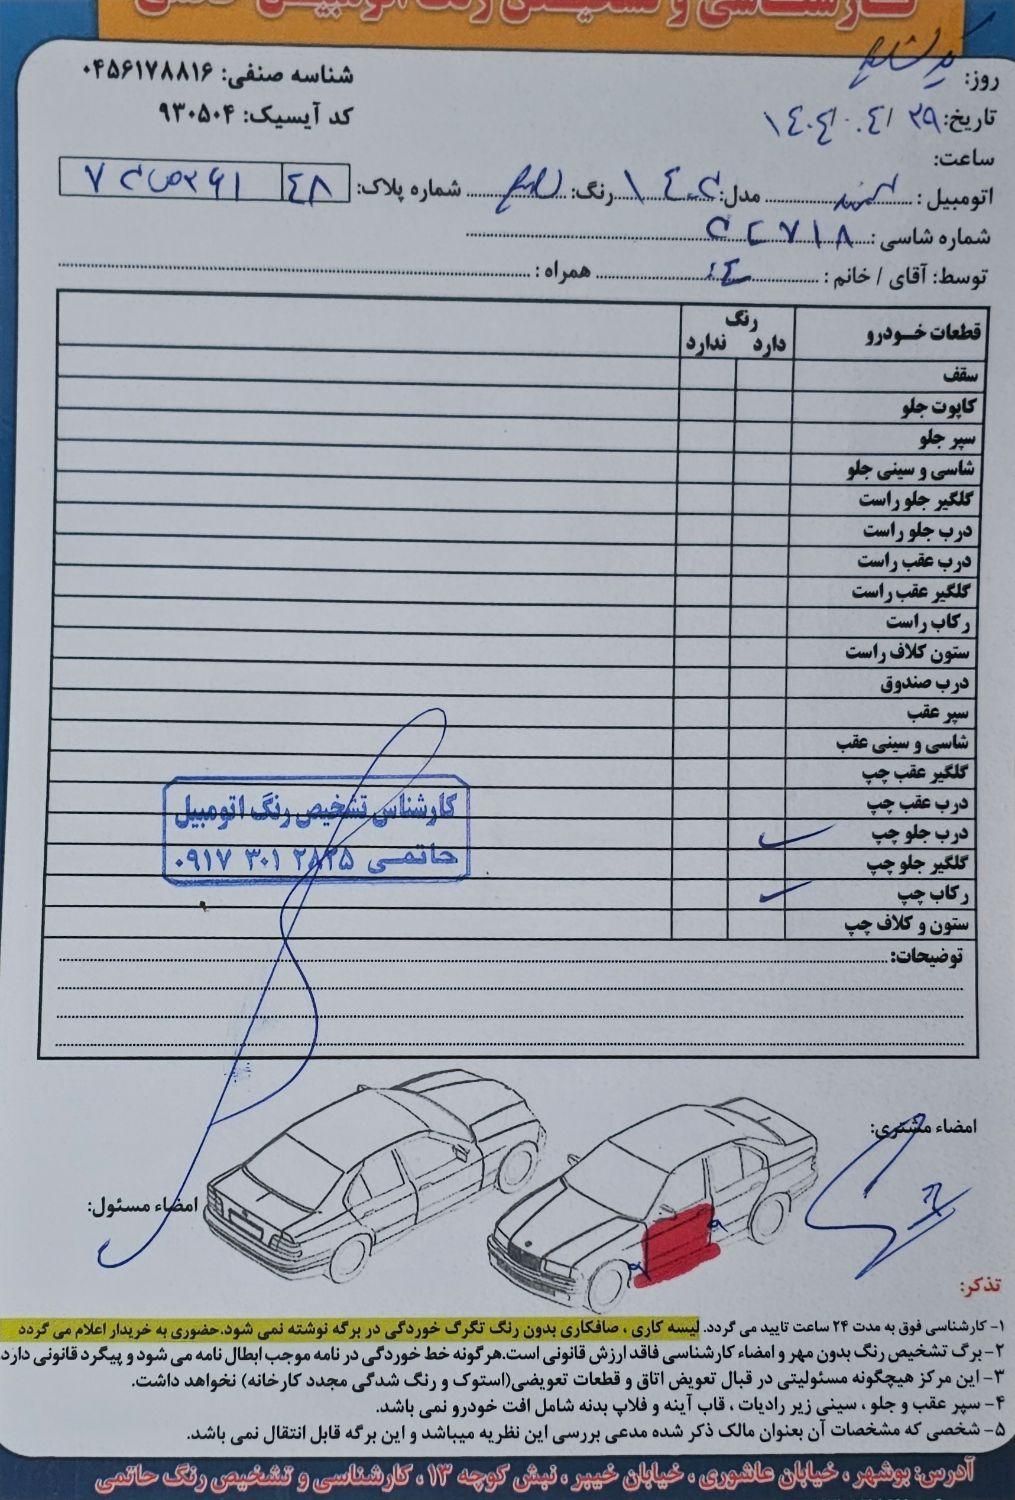 کارشناسی و تشخیص رنگ اتومبیل حاتمی
روز: یکشنبه
شناسه صنفی: ۰۴۵۶۱۷۸۸۱۶
تاریخ: ۱۴۰۴/۰۴/۲۹
کد آیسیک: ۹۳۰۵۰۴
ساعت:
اتومبیل : سمند مدل: رنگ: سفید شماره پلاک: ۴۸
شماره شاسی :
توسط: آقای / خانم : همراه :
قطعات خـودرو
رنگ
دارد ندارد
سقف
کاپوت جلو
سپر جلو
شاسی و سینی جلو
گلگیر جلو راست
درب جلو راست
درب عقب راست
گلگیر عقب راست
رکاب راست
ستون کلاف راست
درب صندوق
سپر عقب
شاسی و سینی عقب
گلگیر عقب چپ
درب عقب چپ
درب جلو چپ
گلگیر جلو چپ
رکاب چپ
ستون و کلاف چپ
کارشناس تشخیص رنگ اتومبیل
حاتمـی ۲۸۲۵ ۳۰۱ ۰۹۱۷
توضیحات:
امضاء مشتری:
امضاء مسئول:
تذکر:
۱- کارشناسی فوق به مدت ۲۴ ساعت تایید می گردد. لیسه کاری ، صافکاری بدون رنگ تگرگ خوردگی در برگه نوشته نمی شود.حضوری به خریدار اعلام می گردد
۲- برگ تشخیص رنگ بدون مهر و امضاء کارشناسی فاقد ارزش قانونی است.هرگونه خط خوردگی در نامه موجب ابطال نامه می شود و پیگرد قانونی دارد
۳- این مرکز هیچگونه مسئولیتی در قبال تعویض اتاق و قطعات تعویضی(استوک و رنگ شدگی مجدد کارخانه) نخواهد داشت.
۴- سپر عقب و جلو ، سینی زیر رادیات ، قاب آینه و فلاپ بدنه شامل افت خودرو نمی باشد.
۵- شخصی که مشخصات آن بعنوان مالک ذکر شده مدعی بررسی این نظریه میباشد و این برگه قابل انتقال نمی باشد.
آدرس: بوشهر ، خیابان عاشوری ، خیابان خیبر ، نبش کوچه ۱۳ ، کارشناسی و تشخیص رنگ حاتمی